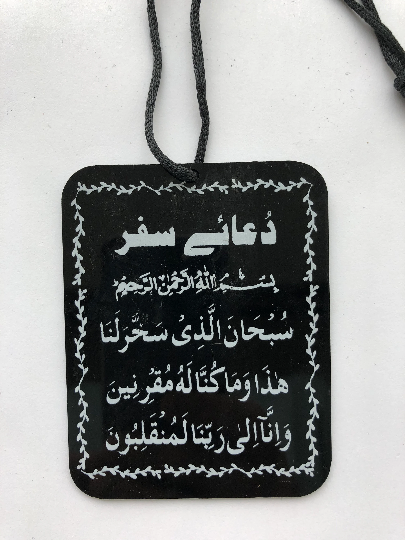 دُعائے سفر
بِسْمِ اللهِ الرَّحْمٰنِ الرَّحِيْمِ
سُبْحَانَ الَّذِىْ سَخَّرَ لَنَا
هٰذَا وَمَا كُنَّا لَهُ مُقْرِنِينَ
وَاِنَّآ اِلٰى رَبِّنَا لَمُنْقَلِبُونَ